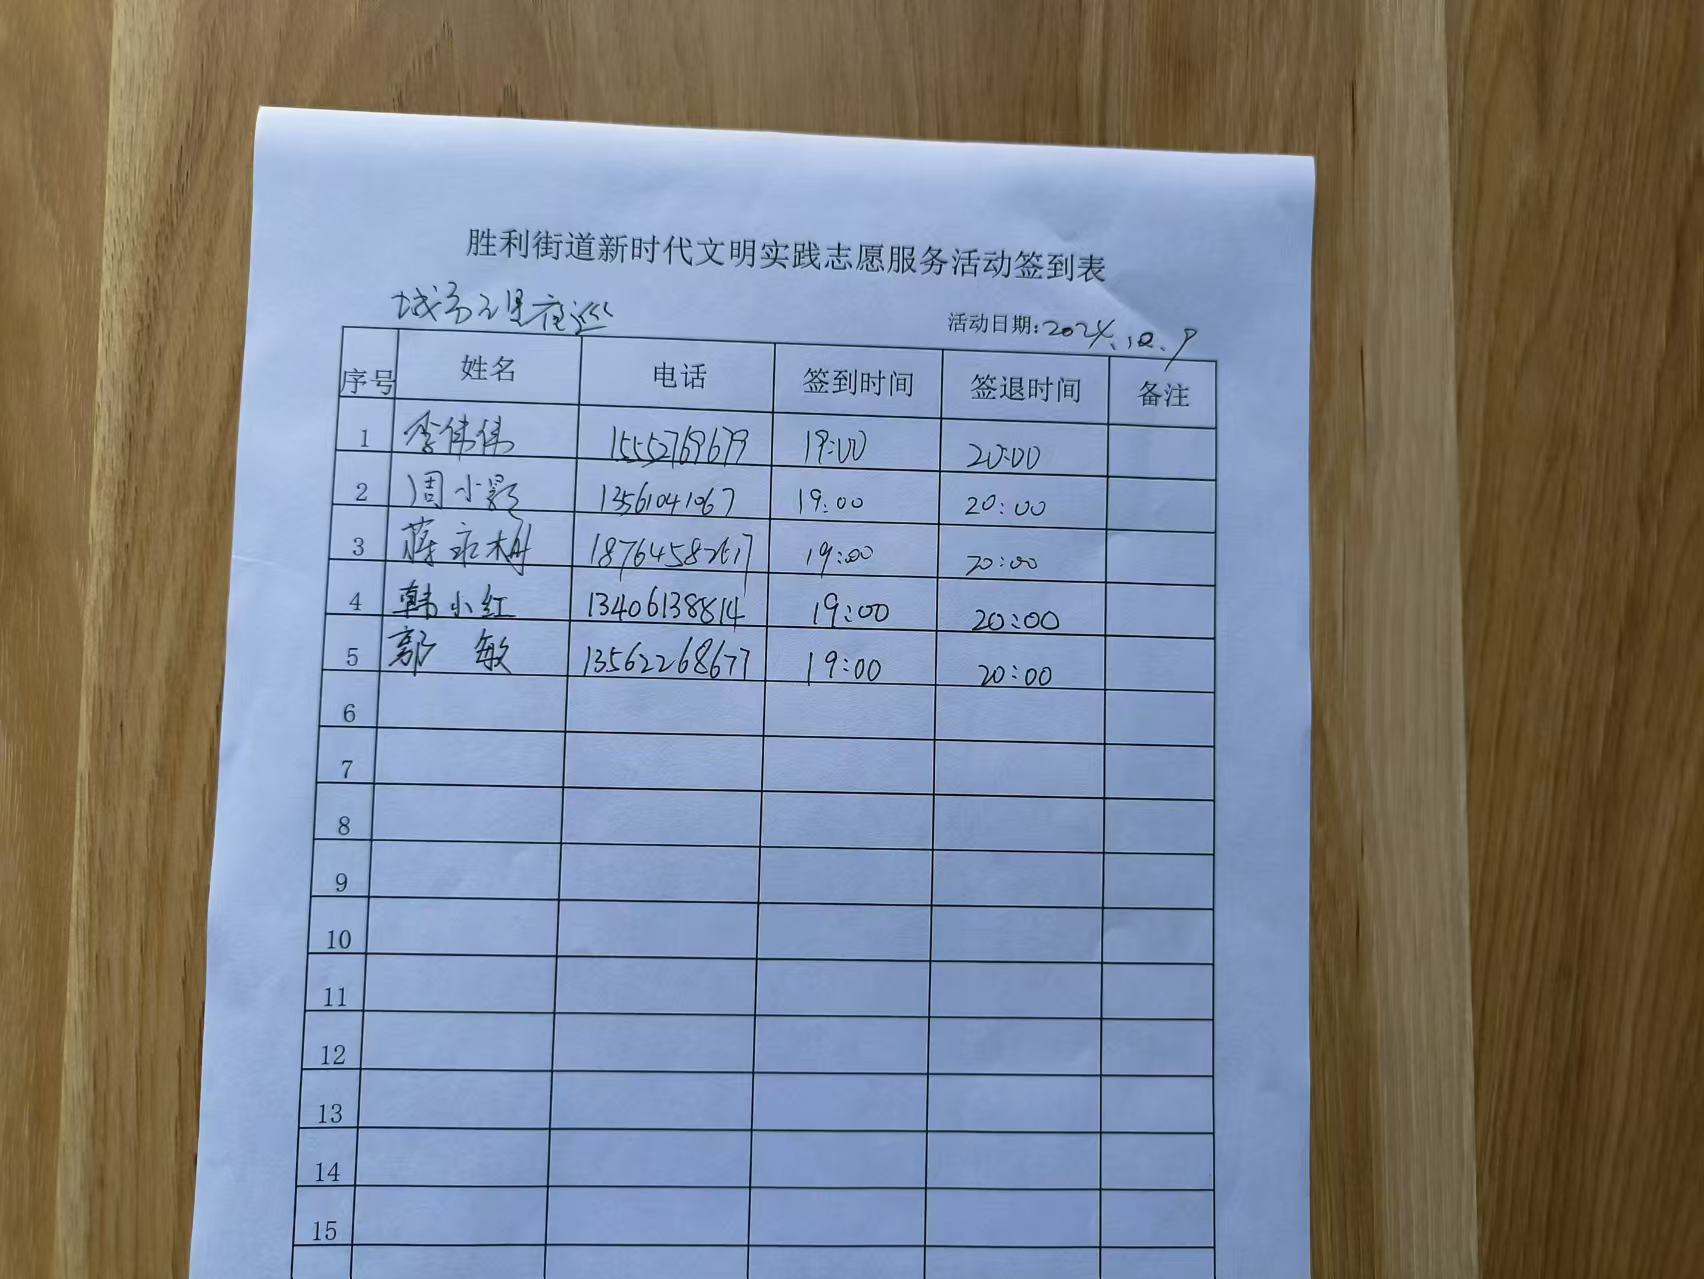 胜利街道新时代文明实践志愿服务活动签到表
活动日期:2024.10.9
序号 姓名 电话 签到时间 签退时间 备注
1 李伟伟 15552769679 19:00 20:00
2 周小影 13561041067 19:00 20:00
3 蒋永梅 18764582617 19:00 20:00
4 韩小红 13406138814 19:00 20:00
5 郭敏 13562268677 19:00 20:00
6
7
8
9
10
11
12
13
14
15